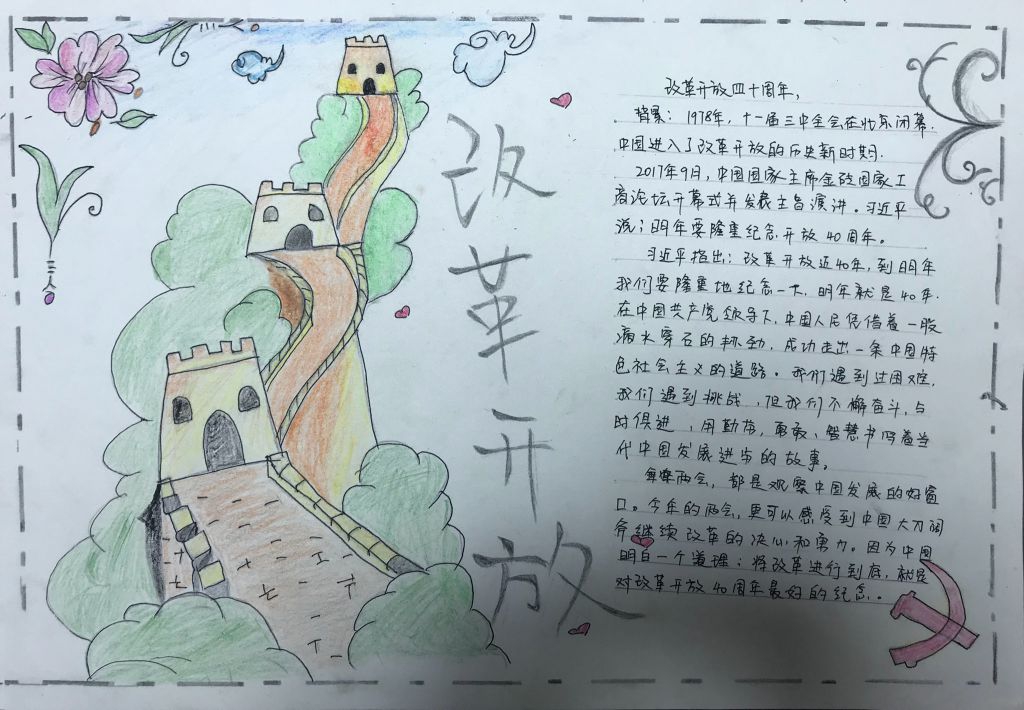 改革开放
改革开放四十周年,
背景: 1978年, 十一届三中全会在北京闭幕.
中国进入了改革开放的历史新时期.
2017年9月, 中国国家主席金砖国家工
商论坛开幕式并发表主旨演讲。习近平
说; 明年要隆重纪念开放40周年。
习近平指出: 改革开放近40年, 到明年
我们要隆重地纪念一下, 明年就是40年.
在中国共产党领导下, 中国人民凭借着一股
滴水穿石的抹劲, 成功走出一条中国特
色社会主义的道路。我们遇到过困难,
我们遇到挑战, 但我们不懈奋斗, 与
时俱进, 用勤劳, 勇敢, 智慧书写着当
代中国发展进步的故事。
每察两会, 都是观察中国发展的好窗
口。今年的两会, 更可以感受到中国大刀阔
斧继续改革的决心和勇力。因为中国
明白一个道理: 将改革进行到底, 就是
对改革开放40周年最好的纪念。